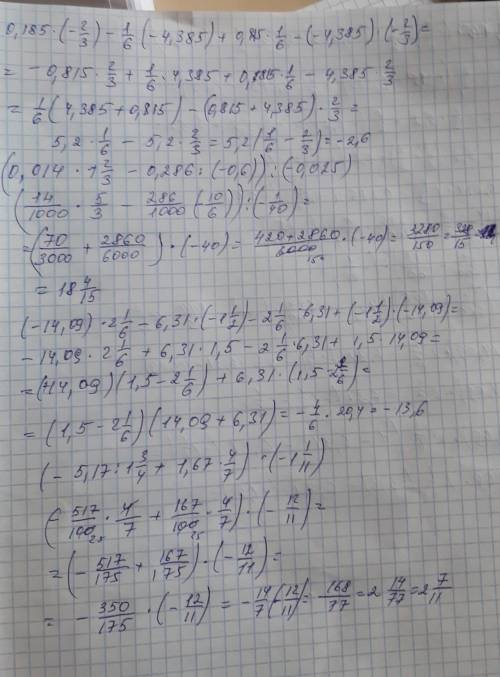 0,185 · (-2/3) - 1/6 (-4,385) + 0,815 · 1/6 - (-4,385) · (-2/3) =
= -0,815 · 2/3 + 1/6 · 4,385 + 0,815 · 1/6 - 4,385 2/3
= 1/6 (4,385 + 0,815) - (0,815 + 4,385) · 2/3 =
5,2 · 1/6 - 5,2 · 2/3 = 5,2 (1/6 - 2/3) = -2,6
(0,014 · 1 2/3 - 0,286 : (-0,6)) : (-0,025)
(14/1000 · 5/3 - 286/1000 (-10/6)) : (-1/40) =
= (70/3000 + 2860/6000) · (-40) = 420+2860/6000 150 · (-40) = 3280/150 = 328/15 =
= 18 4/15
(-14,09) · 2 1/6 - 6,31 · (-1 1/2) - 2 1/6 · 6,31 + (-1 1/2) · (-14,09) =
-14,09 · 2 1/6 + 6,31 · 1,5 - 2 1/6 · 6,31 + 1,5 · 14,09 =
= (+14,09) (1,5 - 2 1/6) + 6,31 · (1,5 - 2 1/6) =
= (1,5 - 2 1/6) (14,09 + 6,31) = -4/6 · 20,4 = -13,6
(-5,17 : 1 3/4 + 1,67 · 4/7) · (-1 1/11)
(-517/100 25 · 4/7 + 167/100 25 · 4/7) · (-12/11) =
= (-517/175 + 167/175) · (-12/11) =
= -350/175 · (-12/11) = -14/7 (-12/11) = 168/77 = 2 14/77 = 2 7/11